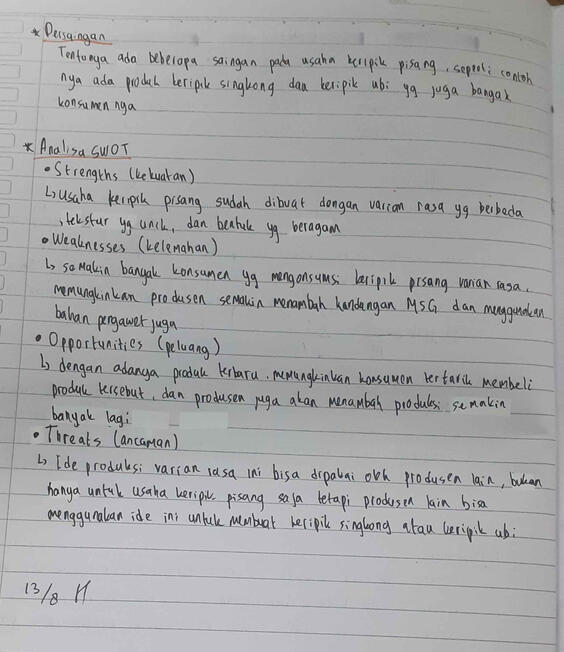 * Persaingan
Tentunya ada beberapa saingan pada usaha keripik pisang, seperti contoh
nya ada produk keripik singkong dan keripik ubi yg juga banyak
konsumen nya
* Analisa SWOT
• Strengths (kekuatan)
↳ Usaha keripik pisang sudah dibuat dengan varian rasa yg berbeda
, tekstur yg unik, dan bentuk yg beragam
• Weaknesses (kelemahan)
↳ semakin banyak konsumen yg mengonsumsi keripik pisang varian rasa,
memungkinkan produsen semakin menambah kandangan MSG dan menggunakan
bahan pengawet juga
• Opportunities (peluang)
↳ dengan adanya produk terbaru, memungkinkan konsumen tertarik membeli
produk tersebut, dan produsen juga akan menambah produksi semakin
banyak lagi
• Threats (ancaman)
↳ Ide produksi varian rasa ini bisa dipakai oleh produsen lain, bukan
hanya untuk usaha keripik pisang saja tetapi produsen lain bisa
menggunakan ide ini untuk membuat keripik singkong atau keripik ubi
13/8